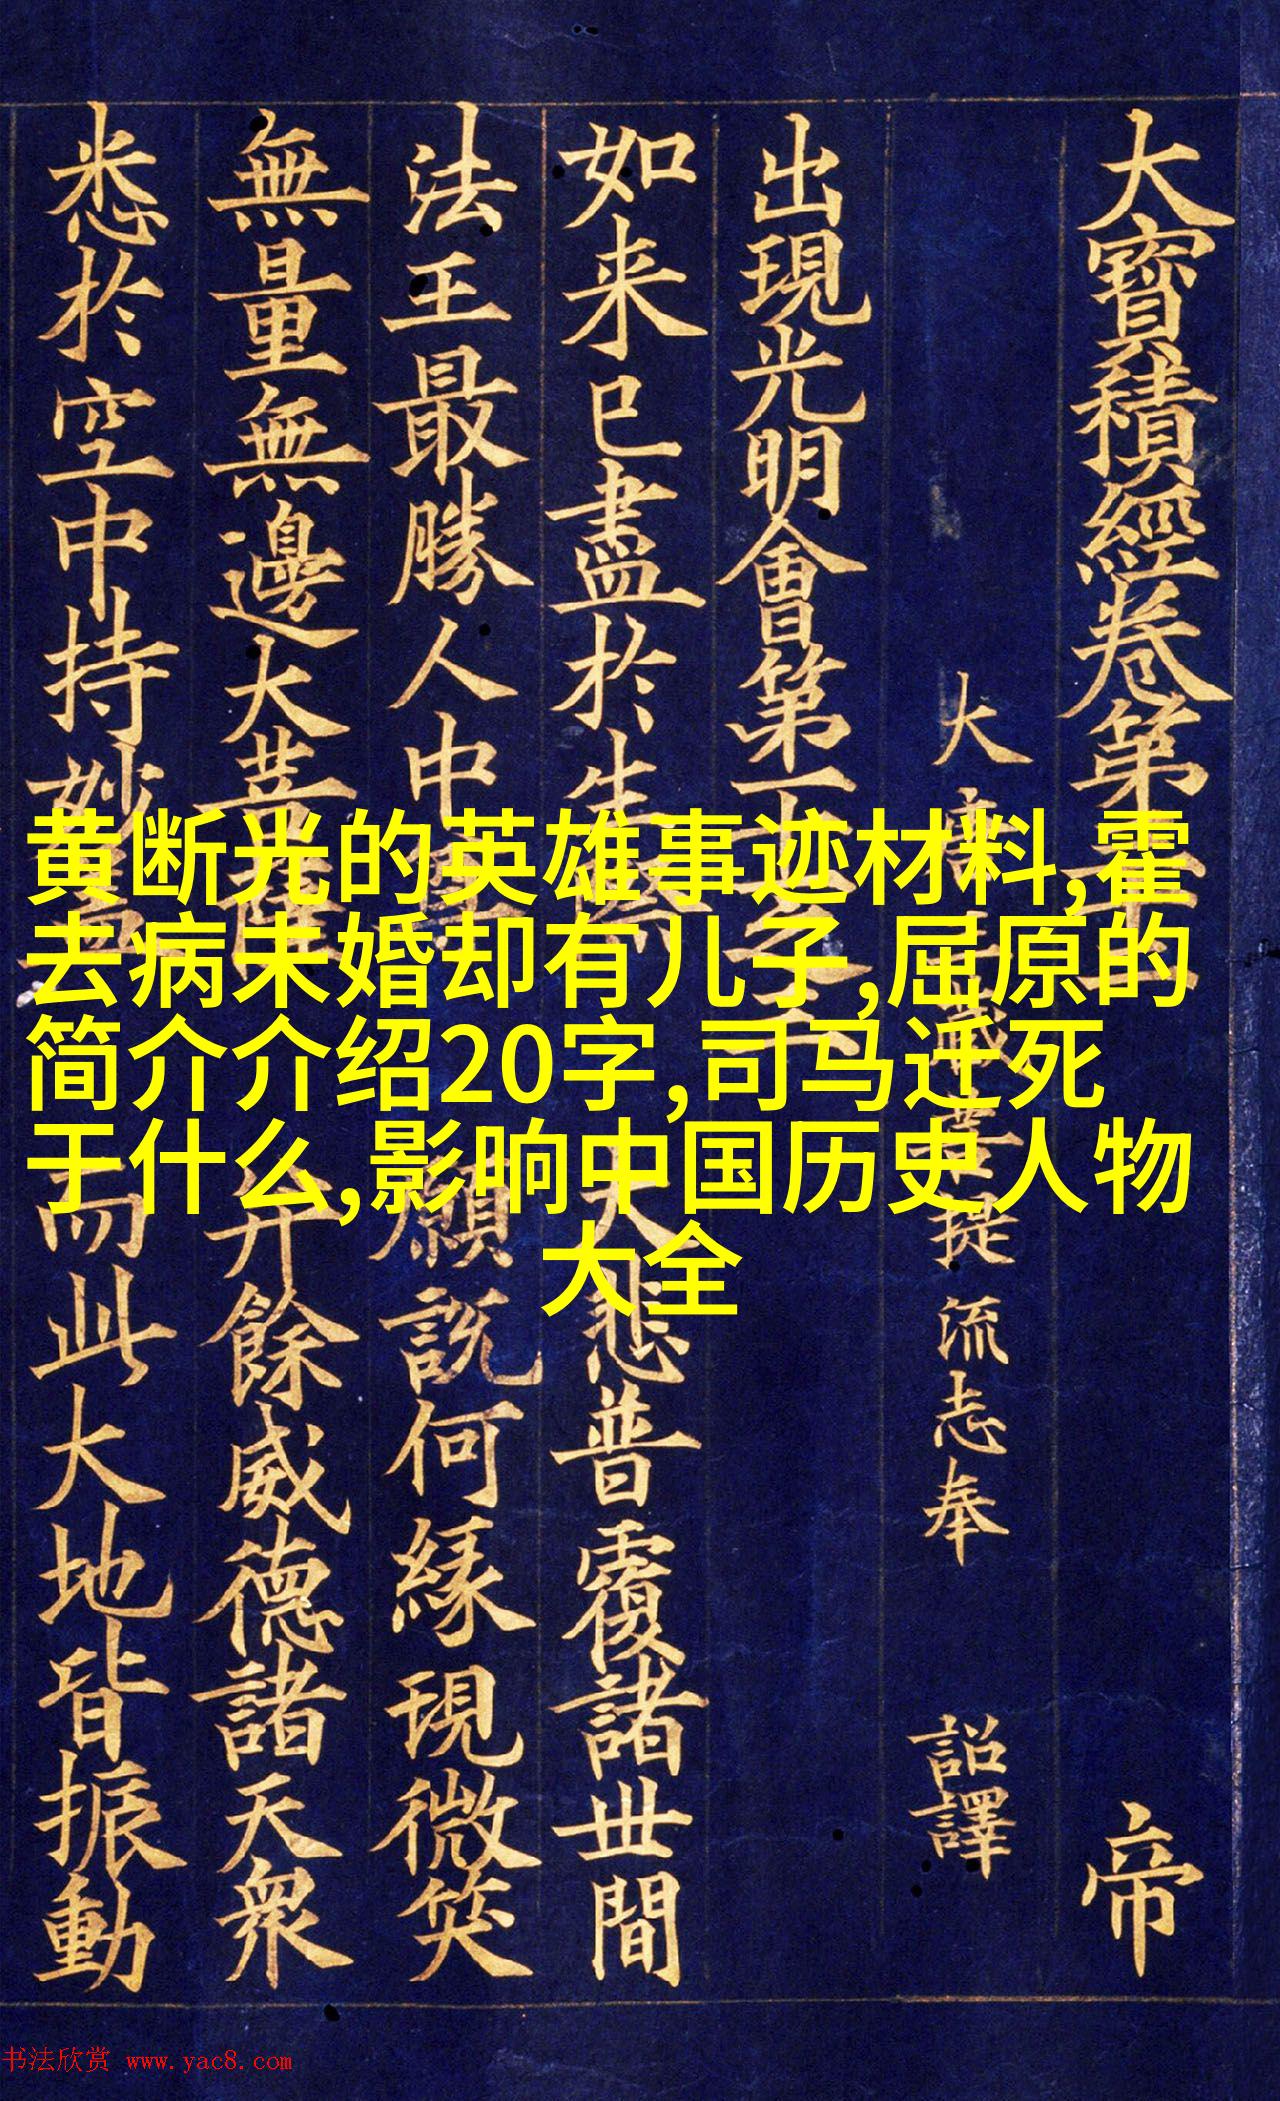 大寶積經卷第 帝
大唐三藏菩提流志奉 詔譯
出現光明會第十一之三
如来已盡於生 大悲普覆諸世間
法王最勝人中 願說何緣現微笑
無量無邊大菩薩 并餘威德諸天衆
悉於空中持妙 而此大地皆振動
黄断光的英雄事迹材料,霍
去病未婚却有儿子,屈原的
简介介绍20字,司马迁死
于什么,影响中国历史人物
大全
书法欣赏 www.yac8.com